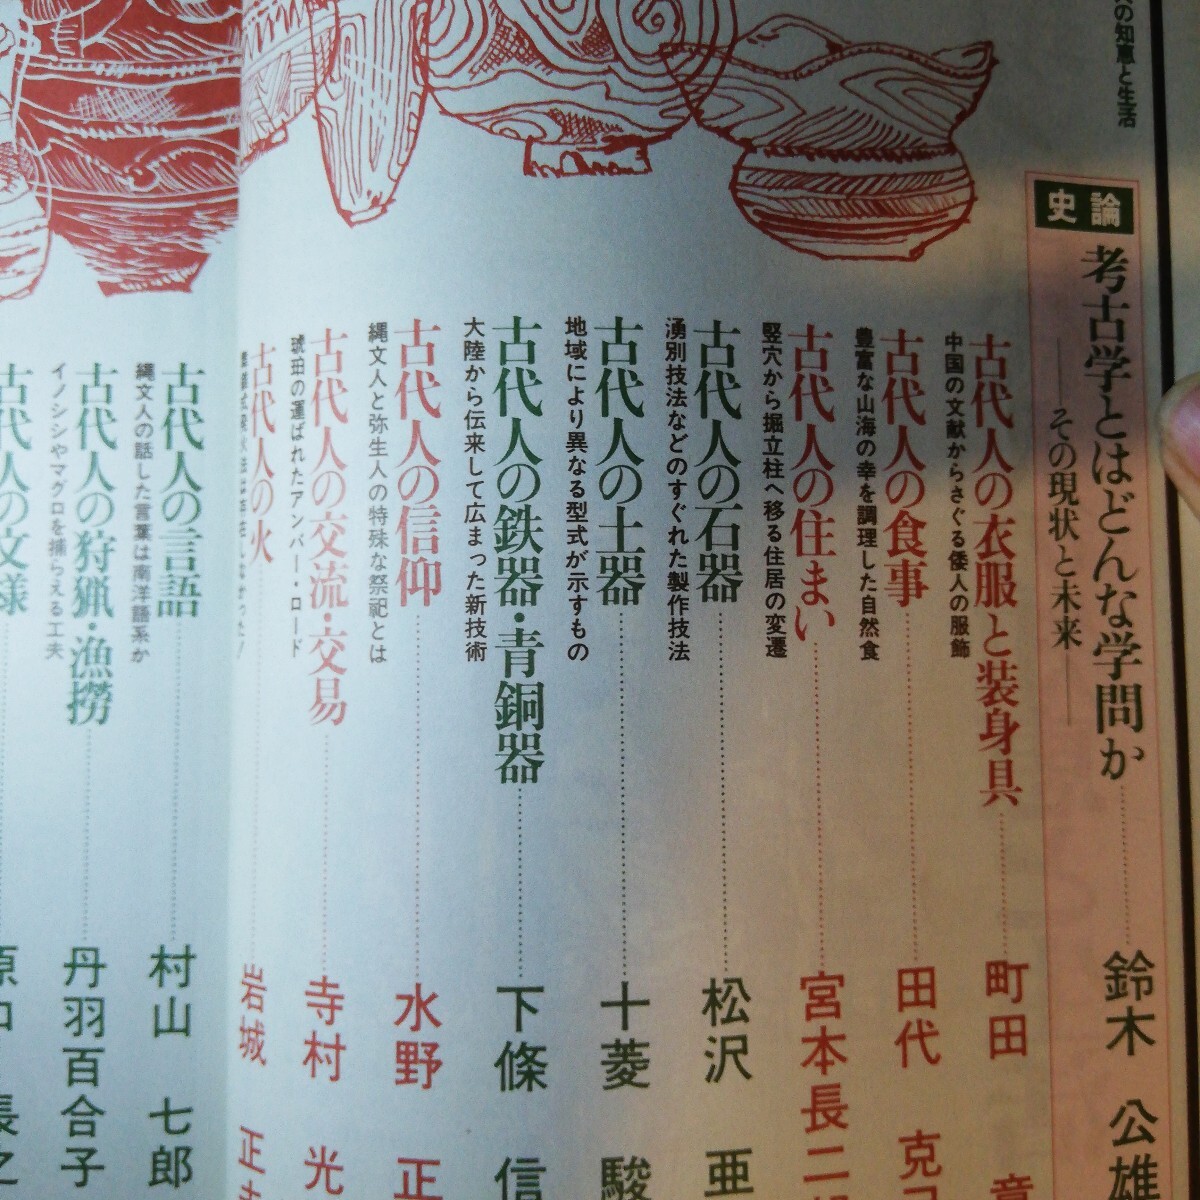 の知恵と生活
史論
考古学とはどんな学問か
―その現状と未来―
鈴木 公雄
古代人の衣服と装身具
中国の文献からさぐる倭人の服飾
町田 章
古代人の食事
豊富な山海の幸を調理した自然食
田代 克
古代人の住まい
竪穴から掘立柱へ移る住居の変遷
宮本長二
古代人の石器
湧別技法などのすぐれた製作技法
松沢 亜
古代人の土器
地域により異なる型式が示すもの
十菱 駿
古代人の鉄器・青銅器
大陸から伝来して広まった新技術
下條 信
古代人の信仰
縄文人と弥生人の特殊な祭祀とは
水野 正
古代人の交流・交易
琥珀の運ばれたアンバー・ロード
寺村 光
古代人の火
岩城 正
古代人の言語
縄文人の話した言葉は南洋語系か
村山 七郎
古代人の狩猟・漁撈
イノシシやマグロを捕らえる工夫
丹羽百合子
古代人の文様